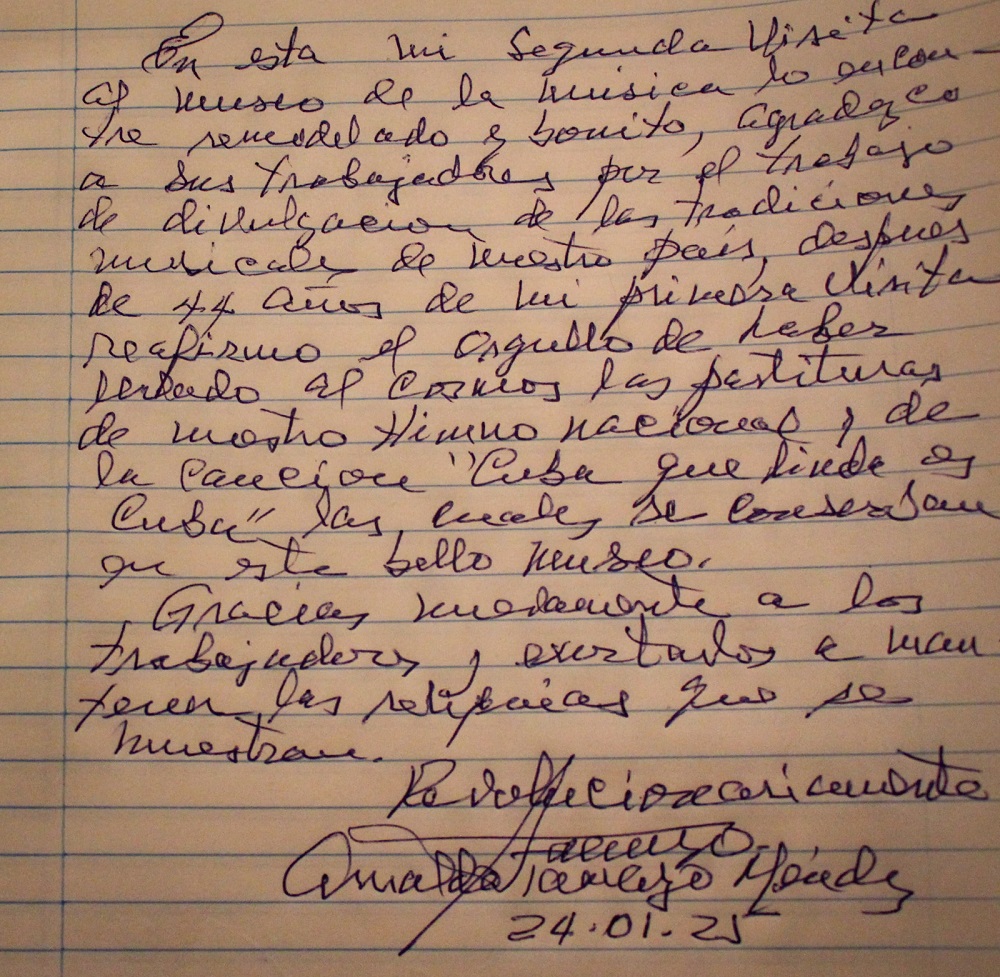 En esta mi Segunda Visita
al museo de la música lo encon-
tre remodelado y bonito, agradezco
a sus trabajadores por el trabajo
de divulgacion de las tradiciones
musicales de nuestro país, despues
de 44 años de mi primera Visita
reafirmo el orgullo de haber
llevado al cosmos las partituras
de nuestro Himno nacional y de
la Cancion "Cuba que linda es
Cuba" las cuales se conservan
en este bello museo.
Gracias nuevamente a los
trabajadores y exortarlos a man
tener las reliquias que se
muestran.
Revolucionariamente
Tamayo
Arnaldo Tamayo Méndez
24.01.25